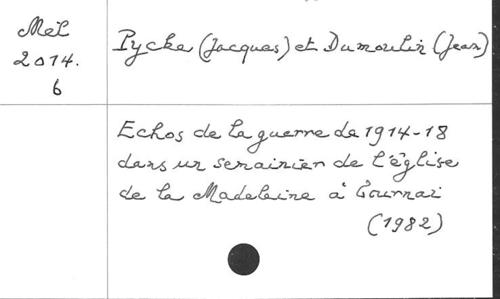 Mel
2014.
6
Pycke (Jacques) et Dumoulin (Jean)
Echos de la guerre de 1914-18
dans un semainier de l'église
de la Madeleine à Tournai
(1982)